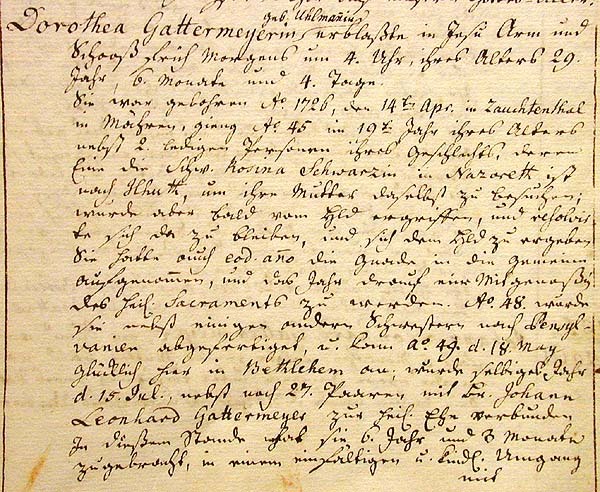 geb. Uhlmañin
Dorothea Gattermeyerin, erblaßte in Jesu Arm und
Schooß früh Morgens um 4. Uhr, ihres Alters 29.
Jahr, 6. Monate und 4. Tage.
Sie war gebohren Aõ 1726, den 14ten Apr. in Zauchtenthal
in Mähren, gieng Aõ 45 im 19ten Jahr ihres Alters
nebst ledigen Personen ihres Geschlechts, deren
Eine die Schw. Rosina Schwarzin in Nazareth ist
nach Hhuth, um ihre Mutter daselbst zu besuchen;
wurde aber bald vom Hld ergriffen, und resolvir-
te sich da zu bleiben, und sich dem Hld zu ergeben
Sie hatte auch eod. año die Gnade in die Gemeine
aufgenommen, und das Jahr drauf eine Mitgenoßin
des heil. Sacraments zu werden. Aõ. 48. wurde
sie nebst einigen andern Schwestern nach Pensyl-
vanien abgefertiget, u. kam aõ. 49. d. 18 May
glücklich hier in Bethlehem an, wurde selbiges Jahr
d. 15. Jul., nebst noch 27. Paaren mit Br. Johann
Leonhard Gattermeyer zur heil. Ehe verbunden
In dießem Stande hat sie 6. Jahr und 3 Monate
zugebracht, in einem einfältigen u. kindl. Umgang
mit